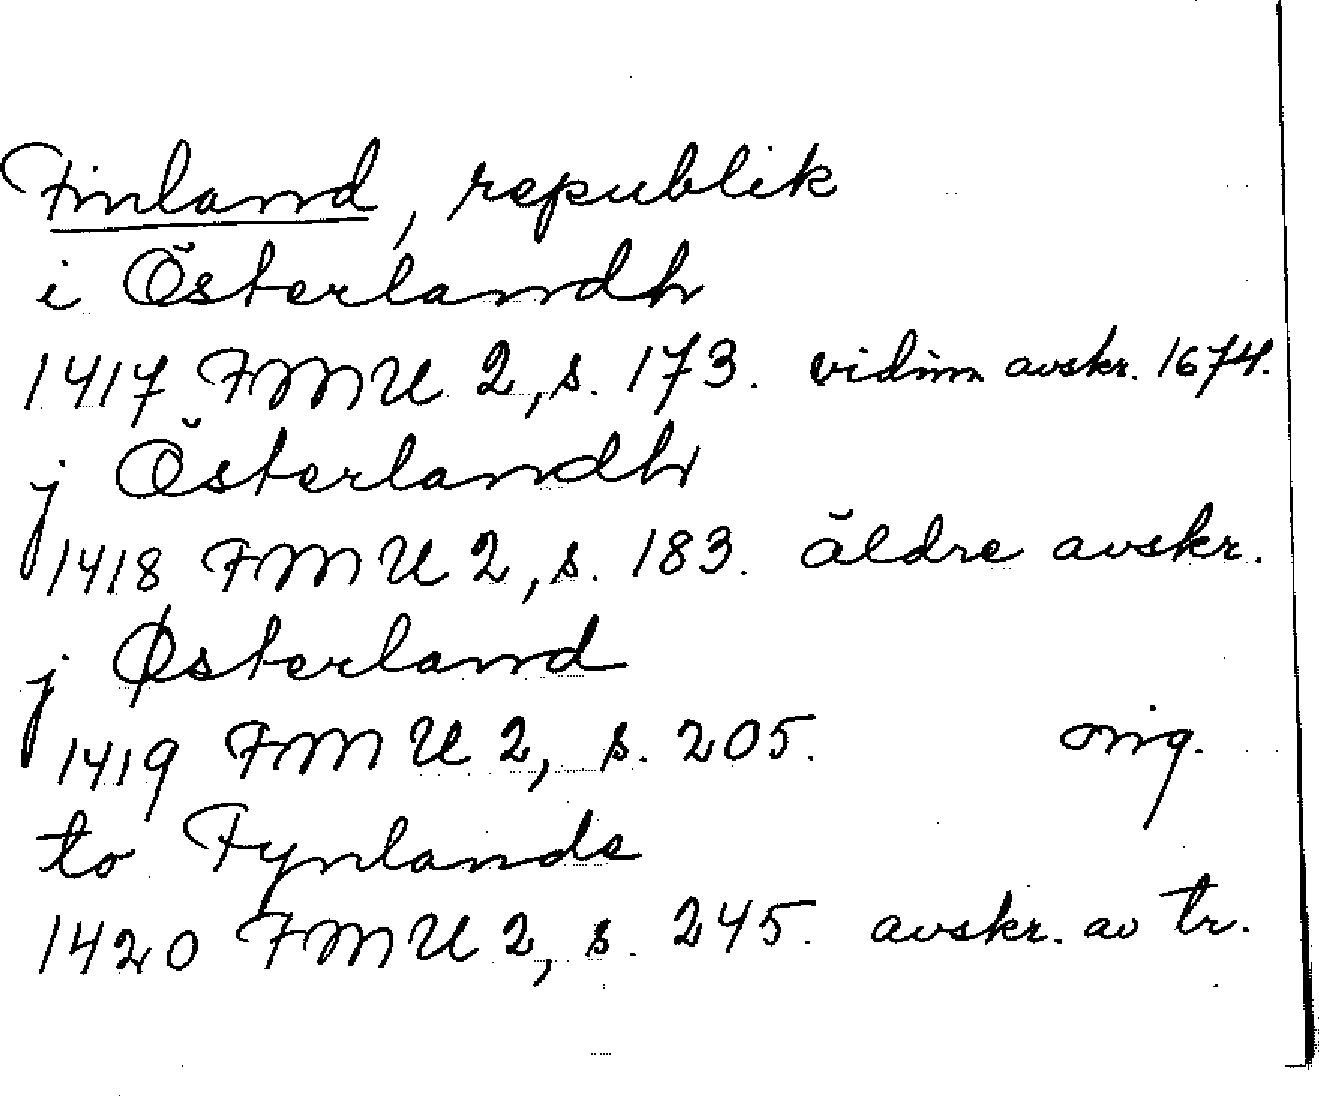 Finland, republik
i Österlandh
1417 FMU 2, s. 173. vidim avskr. 1674.
j Österlandh
1418 FMU 2, s. 183. äldre avskr.
j Østerland
1419 FMU 2, s. 205. orig.
to Fynlande
1420 FMU 2, s. 245. avskr. av tr.